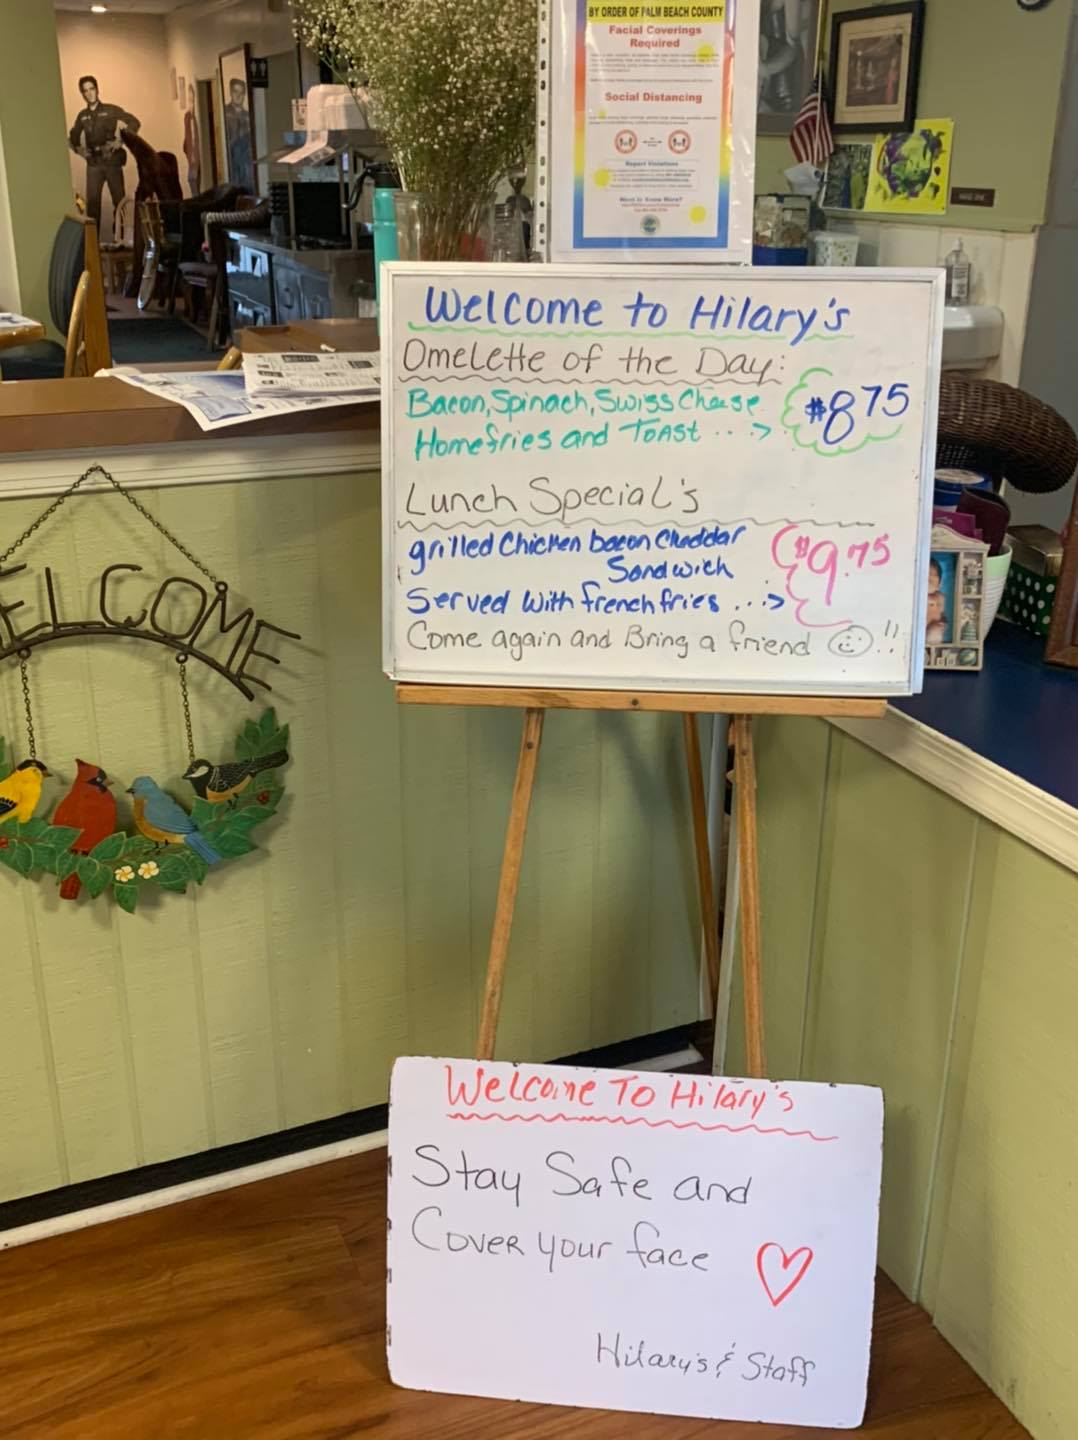 BY ORDER OF PALM BEACH COUNTY
Facial Coverings
Required
Social Distancing
Report Violations
Want to Know More?
Welcome to Hilary's
Omelette of the Day:
Bacon, Spinach, Swiss Cheese
Homefries and Toast ...>
$8 75
Lunch Special's
grilled Chicken bacon Cheddar
Sandwich
Served With french fries ...>
$9.75
Come again and Bring a friend ☺!!
WELCOME
Welcome To Hilary's
Stay Safe and
Cover your face
Hilary's & Staff